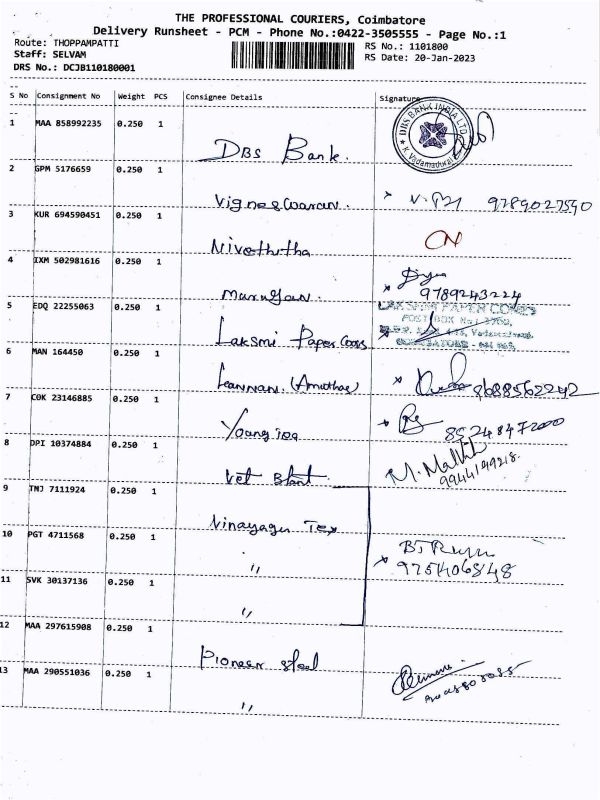 THE PROFESSIONAL COURIERS, Coimbatore
Delivery Runsheet - PCM - Phone No.:0422-3505555 - Page No.:1
Route: THOPPAMPATTI
Staff: SELVAM
DRS No.: DCJB110180001
RS No.: 1101800
RS Date: 20-Jan-2023
S No Consignment No Weight PCS Consignee Details Signature
1 MAA 858992235 0.250 1 DBS Bank.
DBS BANK INDIA LTD
2 GPM 5176659 0.250 1 Vigneswaran. 9789027590
3 KUR 694590451 0.250 1 Nivethitha
4 IXM 502981616 0.250 1 Murugan. 9789243224
5 EDQ 22255063 0.250 1 Laksmi Paper Cons
LAKSHMI PAPER CONES
6 MAN 164450 0.250 1 Kannan. (Amutha) 9688562242
7 COK 23146885 0.250 1 Youngioo
8 DPI 10374884 0.250 1 Vet Blant. M. Mallik
9944199218.
9 TNJ 7111924 0.250 1 Vinayager Tex
10 PGT 4711568 0.250 1 "
9751406848
11 SVK 30137136 0.250 1 "
12 MAA 297615908 0.250 1 Pioneer steel
13 MAA 290551036 0.250 1 "